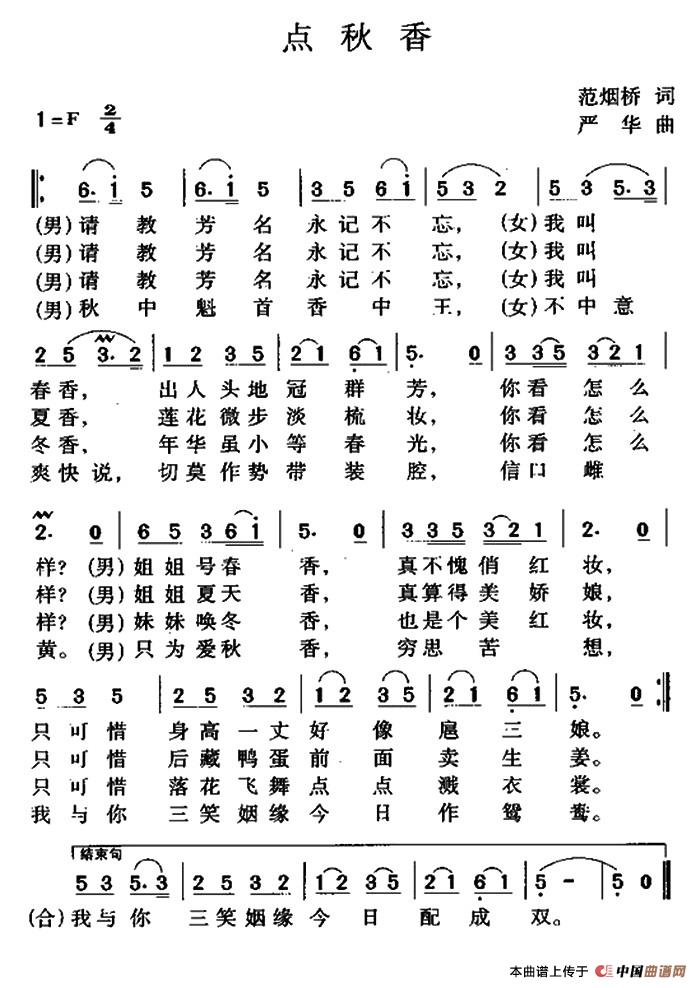 点秋香
范烟桥 词
1=F 2/4
严华 曲
6. i 5 6. i 5 3 5 6 i 5 3 2 5 3 5. 3
(男)请教芳名永记不忘，(女)我叫
(男)请教芳名永记不忘，(女)我叫
(男)请教芳名永记不忘，(女)我叫
(男)秋中魁首香中王，(女)不中意
2 5 3. 2 1 2 3 5 2 1 6 1 5. 0 3 3 5 3 2 1
春香，出人头地冠群芳，你看怎么
夏香，莲花微步淡梳妆，你看怎么
冬香，年华虽小等春光，你看怎么
爽快说，切莫作势带装腔，信口雌
2. 0 6 5 3 6 i 5. 0 3 3 5 3 2 1 2. 0
样？(男)姐姐号春香，真不愧俏红妆，
样？(男)姐姐夏天香，真算得美娇娘，
样？(男)妹妹唤冬香，也是个美红妆，
黄。(男)只为爱秋香，穷思苦想，
5 3 5 2 5 3 2 1 2 3 5 2 1 6 1 5. 0
只可惜身高一丈好像扈三娘。
只可惜后藏鸭蛋前面卖生姜。
只可惜落花飞舞点点溅衣裳。
我与你三笑姻缘今日作鸳鸯。
结束句
5 3 5. 3 2 5 3 2 1 2 3 5 2 1 6 1 5 - 5 0
(合)我与你三笑姻缘今日配成双。
本曲谱上传于 中国曲谱网